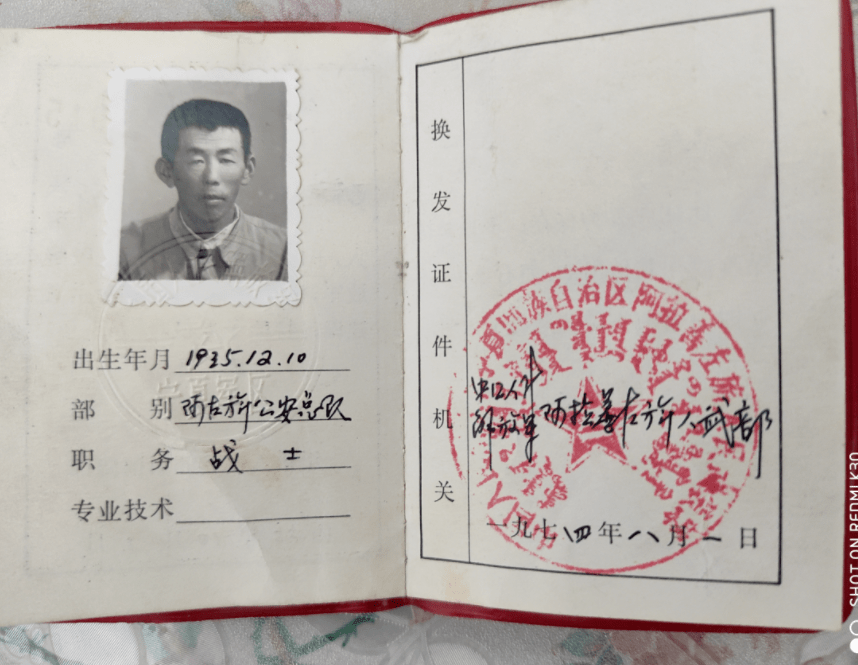 出生年月 1935.12.10
部别 阿左旗公安总队
职务 战士
专业技术
换发证件机关
中国人民
解放军阿拉善左旗人武部
一九七四年八月一日
夏回族自治区阿拉善左旗
SHOT ON REDMI K30